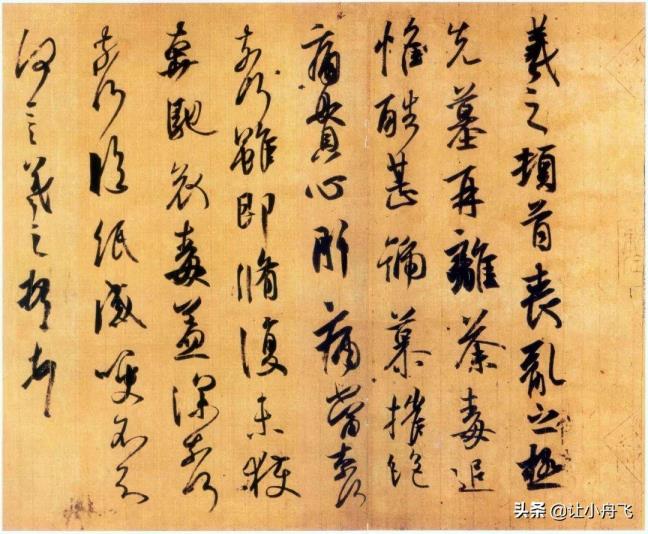 羲之頓首喪亂之極
先墓再離荼毒追
惟酷甚號慕摧絕
痛貫心肝痛當奈何
奈何雖即脩復未獲
奔馳哀毒益深奈何
奈何臨紙感哽不知
何言羲之頓首頓首
头条 @让小舟飞